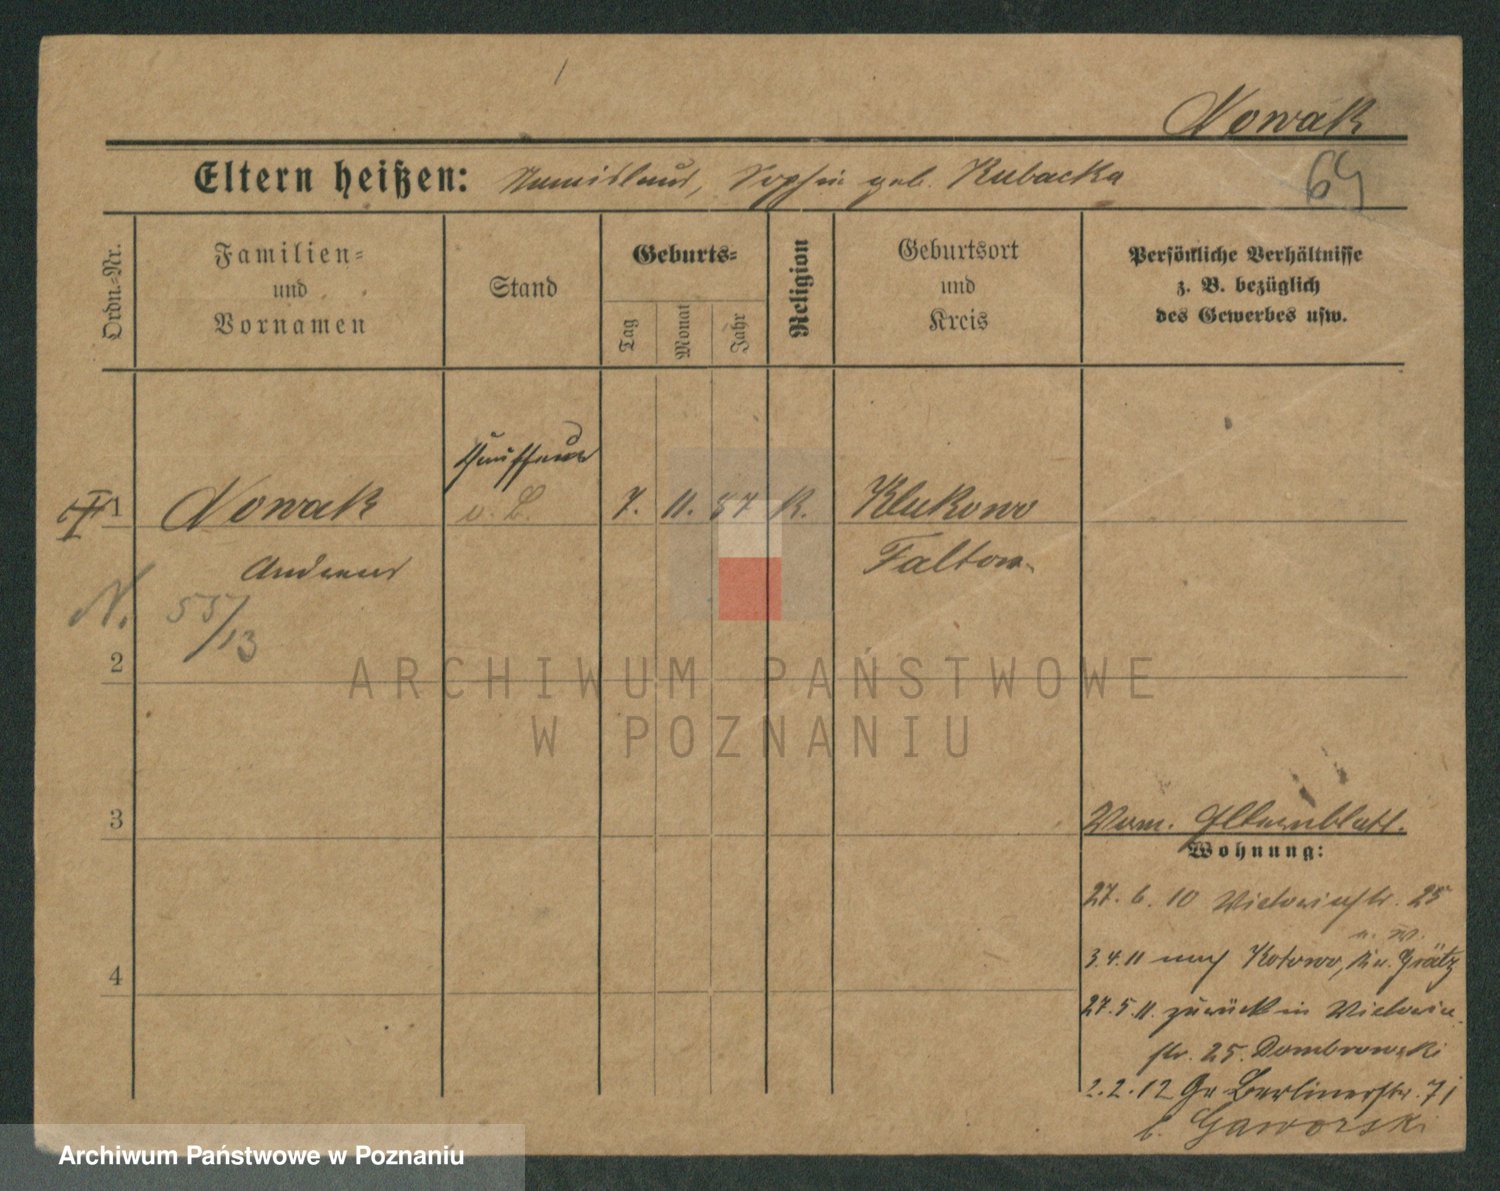 Nowak
Eltern heißen: Stanislaus, Sophie geb. Kubacka
64
Ordn.-Nr.
Familien-
und
Vornamen
Stand
Geburts-
Tag
Monat
Jahr
Religion
Geburtsort
und
Kreis
Persönliche Verhältnisse
z. B. bezüglich
des Gewerbes usw.
1
Nowak
Andreas
7. 11. 87 K.
Klukowo
Flatow.
N. 55/13
2
3
4
Vom. Elternblatt.
Wohnung:
27. 6. 10 Victoriastr. 25
3.4.11 nach Kotowo, Kr. Grätz
27.5.11. zurück in Victoria
str. 25. Dombrowski
2.2.12 Gr Berlinerstr. 71
b. Gaworski
ARCHIWUM PAŃSTWOWE
W POZNANIU
Archiwum Państwowe w Poznaniu